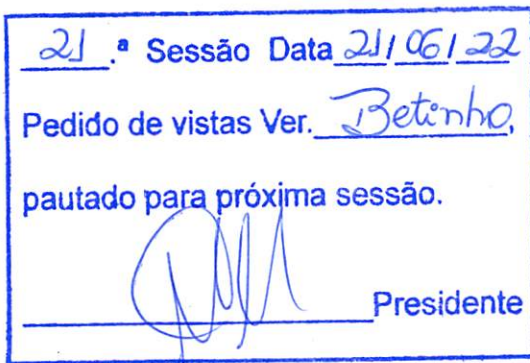 21.ª Sessão Data 21/06/22
Pedido de vistas Ver. Betinho,
pautado para próxima sessão.
Presidente